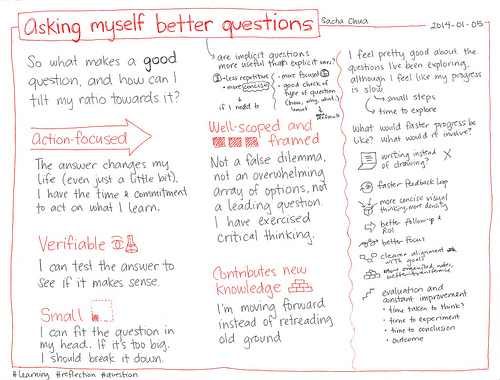 Asking myself better questions
Sacha Chua
2014-01-05
So what makes a good
question, and how can I
tilt my ratio towards it?
Action-focused
The answer changes my
life (even just a little bit).
I have the time & commitment
to act on what I learn.
Verifiable
I can test the answer to
see if it makes sense.
Small
I can fit the question in
my head. If it's too big,
I should break it down.
are implicit questions
more useful than explicit ones?
• less repetitive
• more concise
if I need to
• more focused
• good check of
type of question
(how, why, what)
want
different
Well-scoped and
framed
Not a false dilemma,
not an overwhelming
array of options, not
a leading question.
I have exercised
critical thinking.
Contributes new
knowledge
I'm moving forward
instead of retreading
old ground
I feel pretty good about the
questions I've been exploring,
although I feel like my progress
is slow.
small steps
time to explore
What would faster progress be
like? What would it involve?
writing instead
of drawing? X
faster feedback loop
more concise visual
thinking, more density
better follow-up &
ROI
better focus
clearer alignment
with goals
more organized notes,
better
evaluation and
constant improvement
• time taken to think?
• time to experiment
• time to conclusion
• outcome
#learning #reflection #question